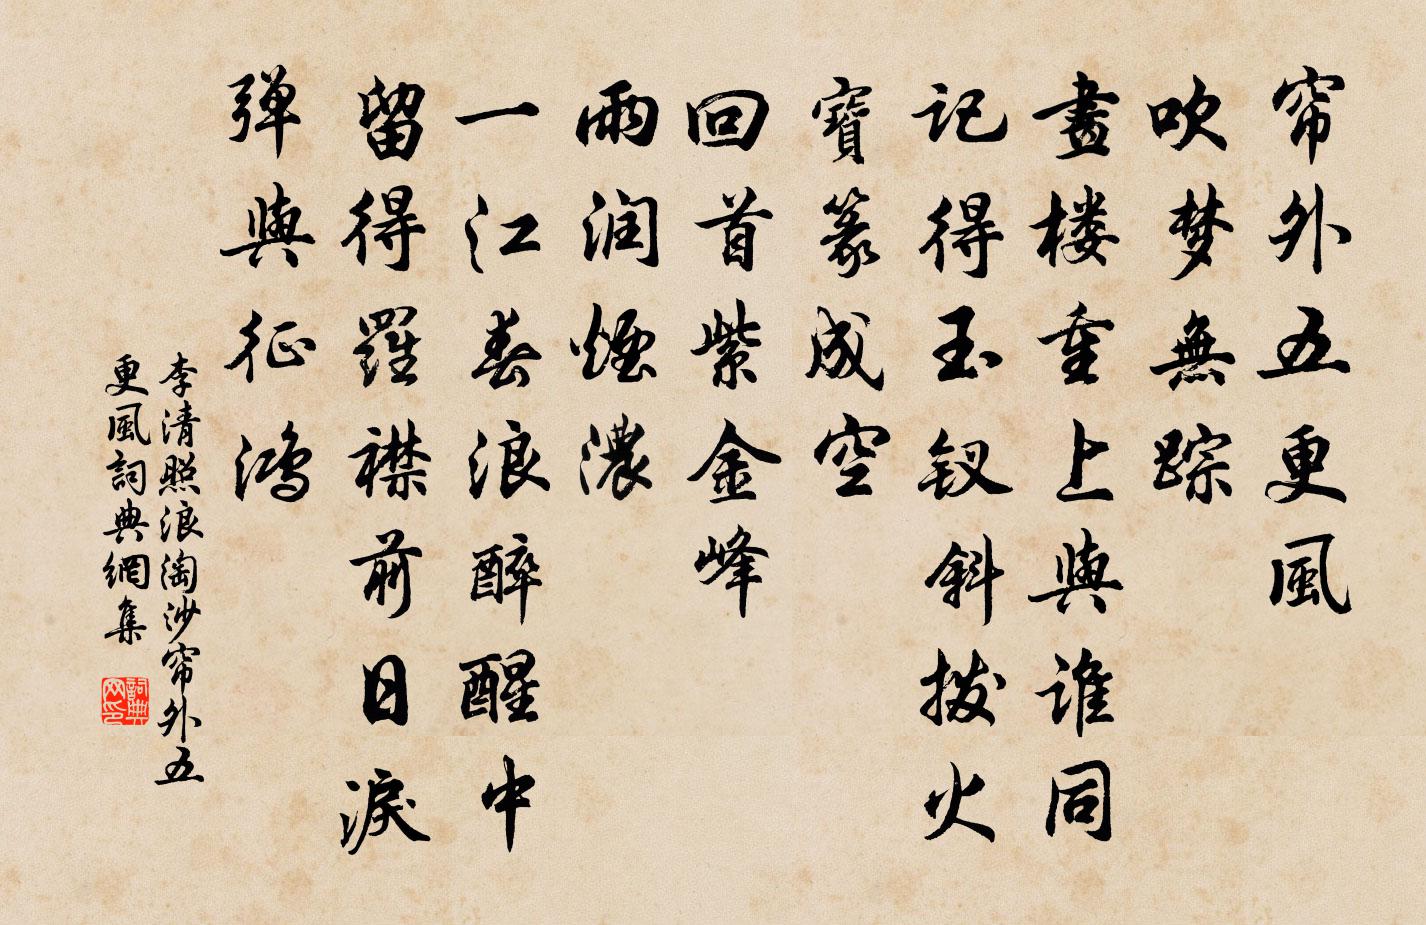 帘外五更風
吹梦無踪
畫楼重上與谁同
记得玉钗斜拨火
寶篆成空
回首紫金峰
雨润煙濃
一江春浪醉醒中
留得羅襟前日淚
弹與征鸿
李清照浪淘沙帘外五
更風詞典網集
詞典
网印